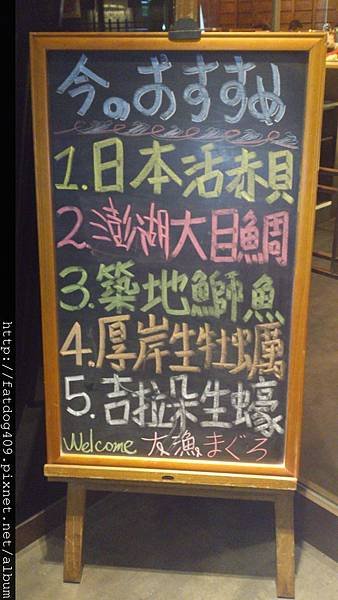 今のおすすめ
1.日本活赤貝
2.澎湖大目鯛
3.築地鰤魚
4.厚岸生牡蠣
5.吉拉朵生蠔
Welcome 友漁 まぐろ
http://fatdog409.pixnet.net/album